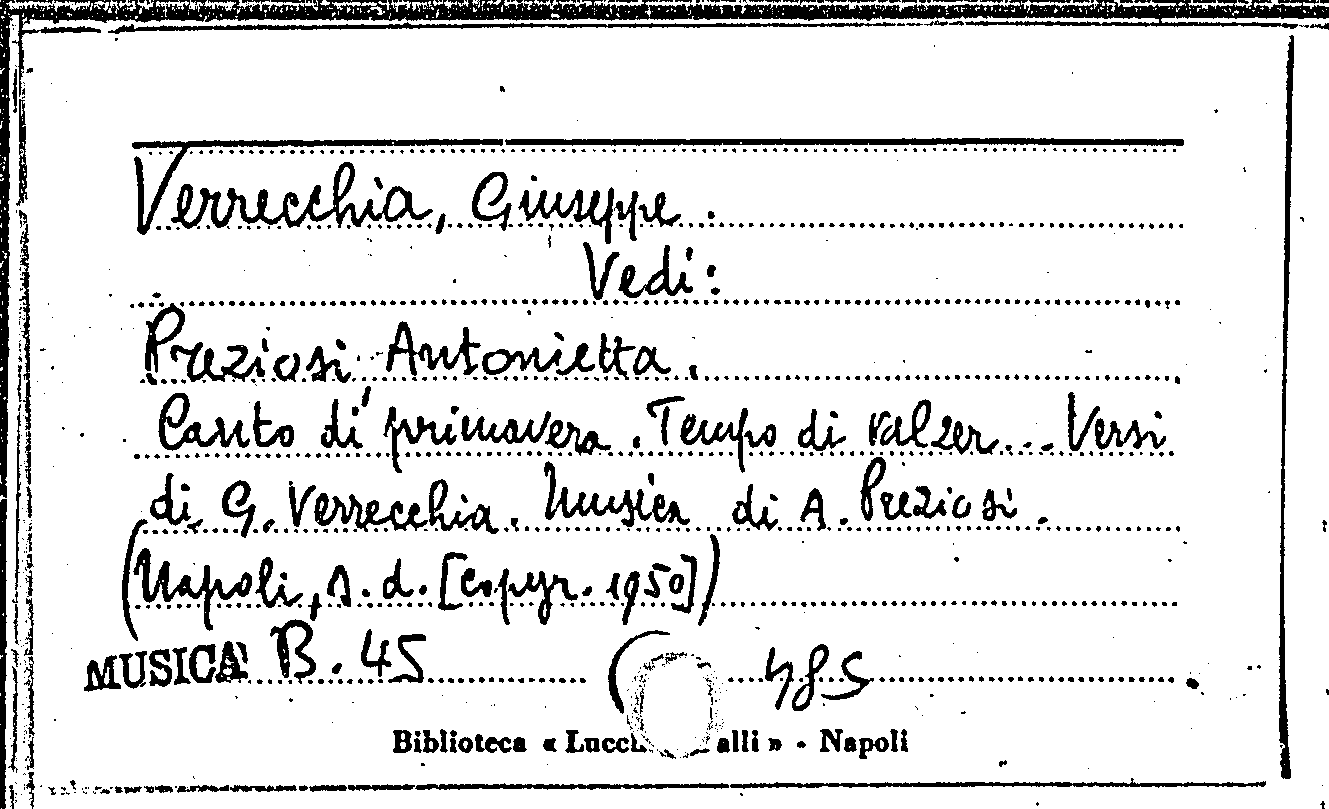 Verrecchia, Giuseppe.
Vedi:
Preziosi, Antonietta.
Canto di primavera. Tempo di valzer... Versi
di G. Verrecchia. Musica di A. Preziosi.
(Napoli, s. d. [copyr. 1950])
MUSICA B. 45 ( 485
Biblioteca « Lucch alli » - Napoli